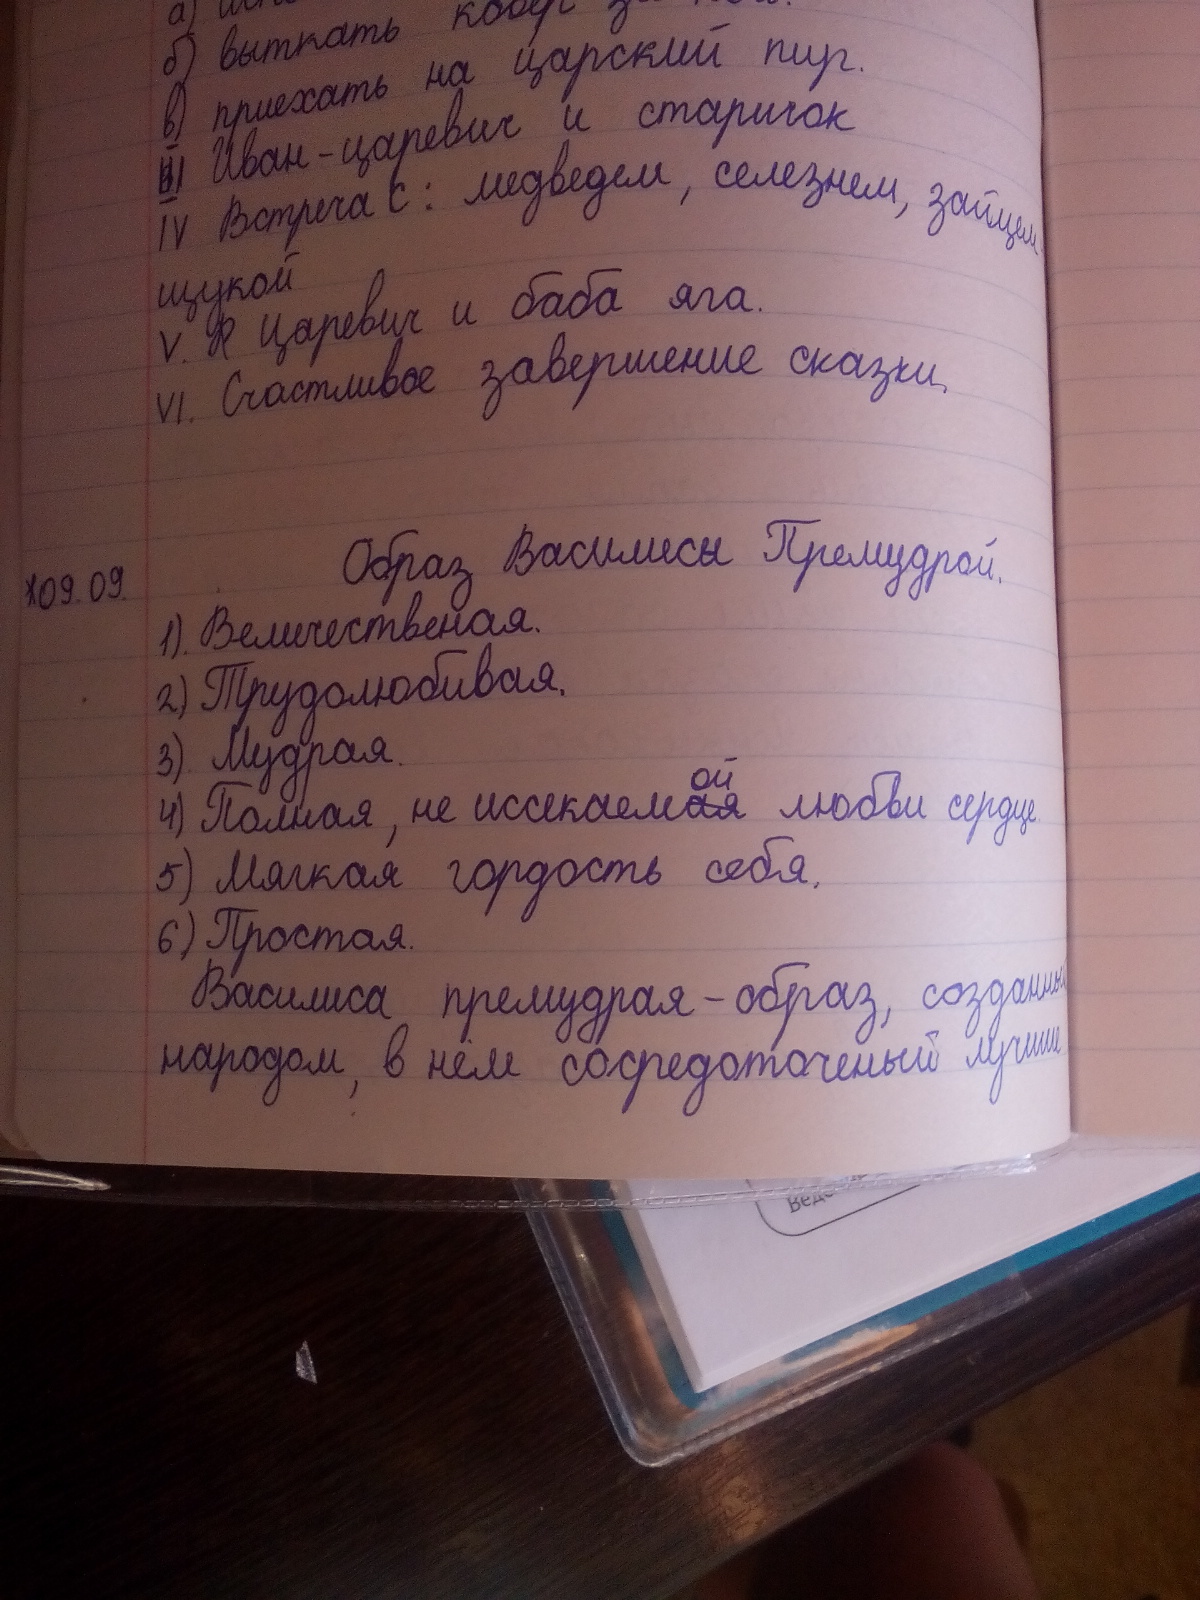 а)
б) выткать ковёр за ночь.
в) приехать на царский пир.
III Иван-царевич и старичок
IV Встреча с: медведем, селезнем, зайцем
щукой
V. Царевич и баба яга.
VI. Счастливое завершение сказки.
09.09. Образ Василисы Премудрой.
1). Величественая.
2) Трудолюбивая.
3) Мудрая.
ой
4) Полная, не иссекаемая любви сердце
5) Мягкая гордость себя.
6) Простая.
Василиса премудрая - образ, созданный
народом, в нём сосредоточеный лучшие